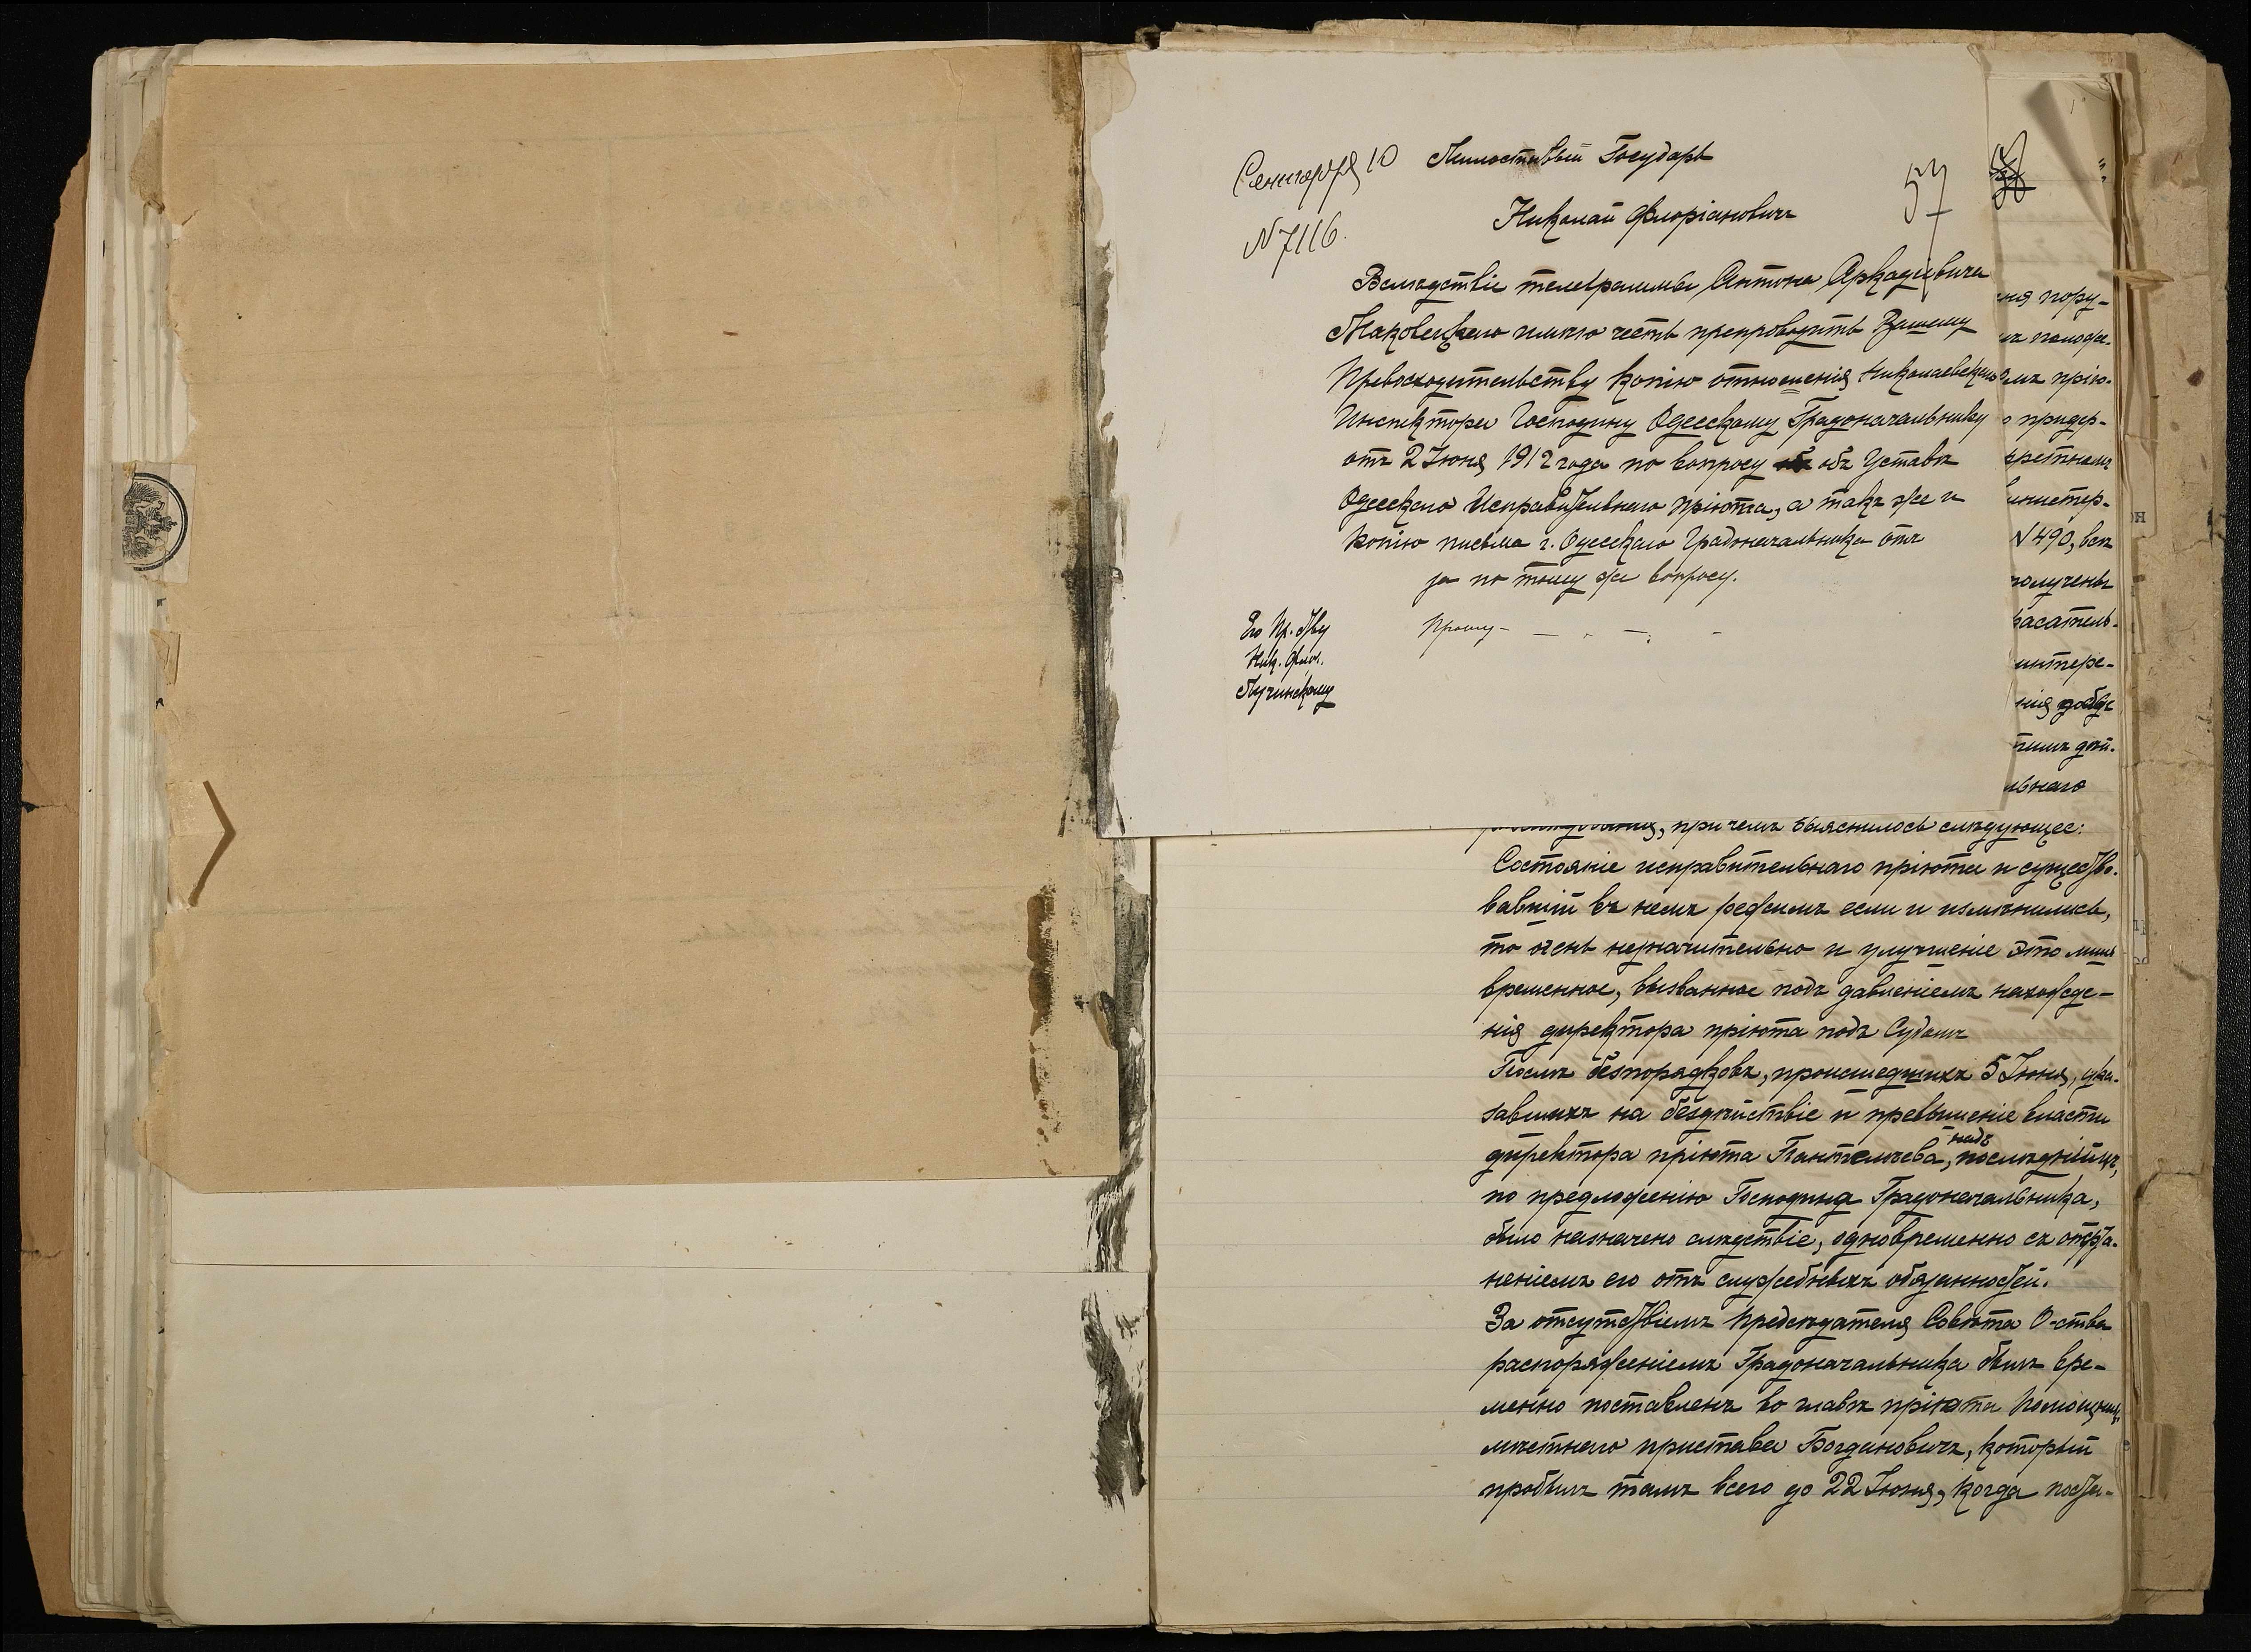 Сентября 10
N 7116.
57
Милостивый Государь
Николай Флоріановичъ
Вслѣдствіе телеграммы Антона Аркадіевича
Маковецкаго имѣю честь препроводить Вашему
Превосходительству копію отношенія Николаевскаго
Инспектора Господину Одесскому Градоначальнику
отъ 2 Іюня 1912 года по вопросу объ Уставѣ
Одесскаго Исправительнаго пріюта, а такъ же и
копію письма г. Одесскаго Градоначальника отъ
за по тому же вопросу.
Прошу
Его Пр-ству
Ник. Флор.
Лучинскому
нія пору-
омъ прію-
о придер-
министер-
N 490, всѣ
получены
касатель-
интере-
нія
льнаго
, при чемъ выяснилось слѣдующее:
Состояніе исправительнаго пріюта и существо-
вавшій въ немъ режимъ если и измѣнились,
то очень незначительно и улучшеніе это лишь
временное, вызванное подъ давленіемъ нахожде-
нія директора пріюта подъ Судомъ
Послѣ безпорядковъ, происшедшихъ 5 Іюня, ука-
завшихъ на бездѣйствіе и превышеніе власти
директора пріюта Пантелѣева, надъ послѣднимъ,
по предложенію Господина Градоначальника,
было назначено слѣдствіе, одновременно съ отстра-
неніемъ его отъ служебныхъ обязанностей.
За отсутствіемъ Предсѣдателя Совѣта О-ства
распоряженіемъ Градоначальника былъ вре-
менно поставленъ во главѣ пріюта Помощникъ
мѣстнаго пристава Богдановичъ, который
пробылъ тамъ всего до 22 Іюня, когда поста-